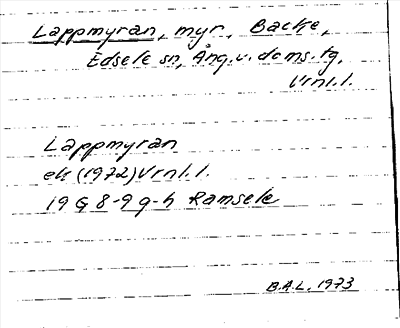 Lappmyran, myr, Backe,
Edsele sn, Ång.v. doms.tg,
Vrnl.l.
Lappmyran
ek (1972) Vrnl.l.
19 G 8-9 g-h Ramsele
B.A.L. 1973